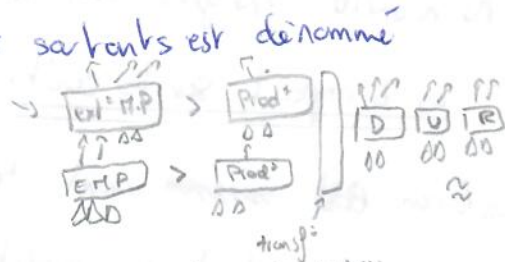 sortants est dénommé
ext° M.P > Prod° D U R
EMP > Prod°
transf°